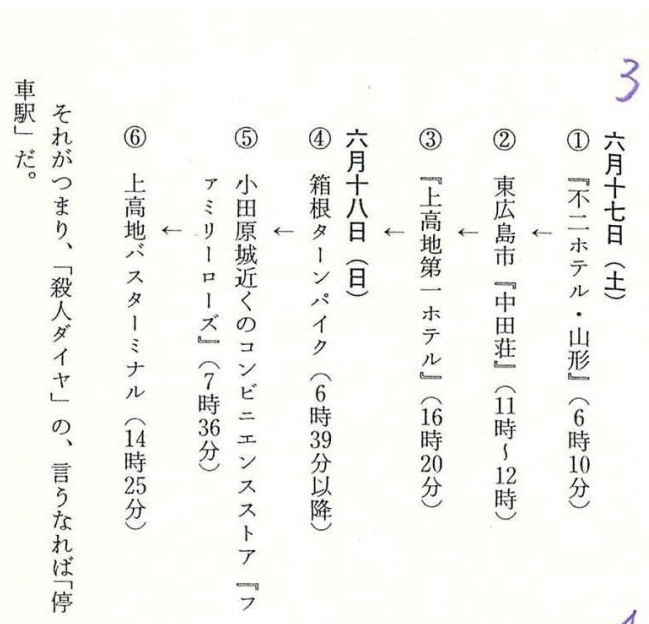 3
六月十七日（土）
① 『不二ホテル・山形』（6時10分）
↓
② 東広島市『中田荘』（11時～12時）
↓
③ 『上高地第一ホテル』（16時20分）
↓
六月十八日（日）
④ 箱根ターンパイク（6時39分以降）
↓
⑤ 小田原城近くのコンビニエンスストア『フ
ァミリーローズ』（7時36分）
↓
⑥ 上高地バスターミナル（14時25分）
それがつまり、「殺人ダイヤ」の、言うなれば「停
車駅」だ。